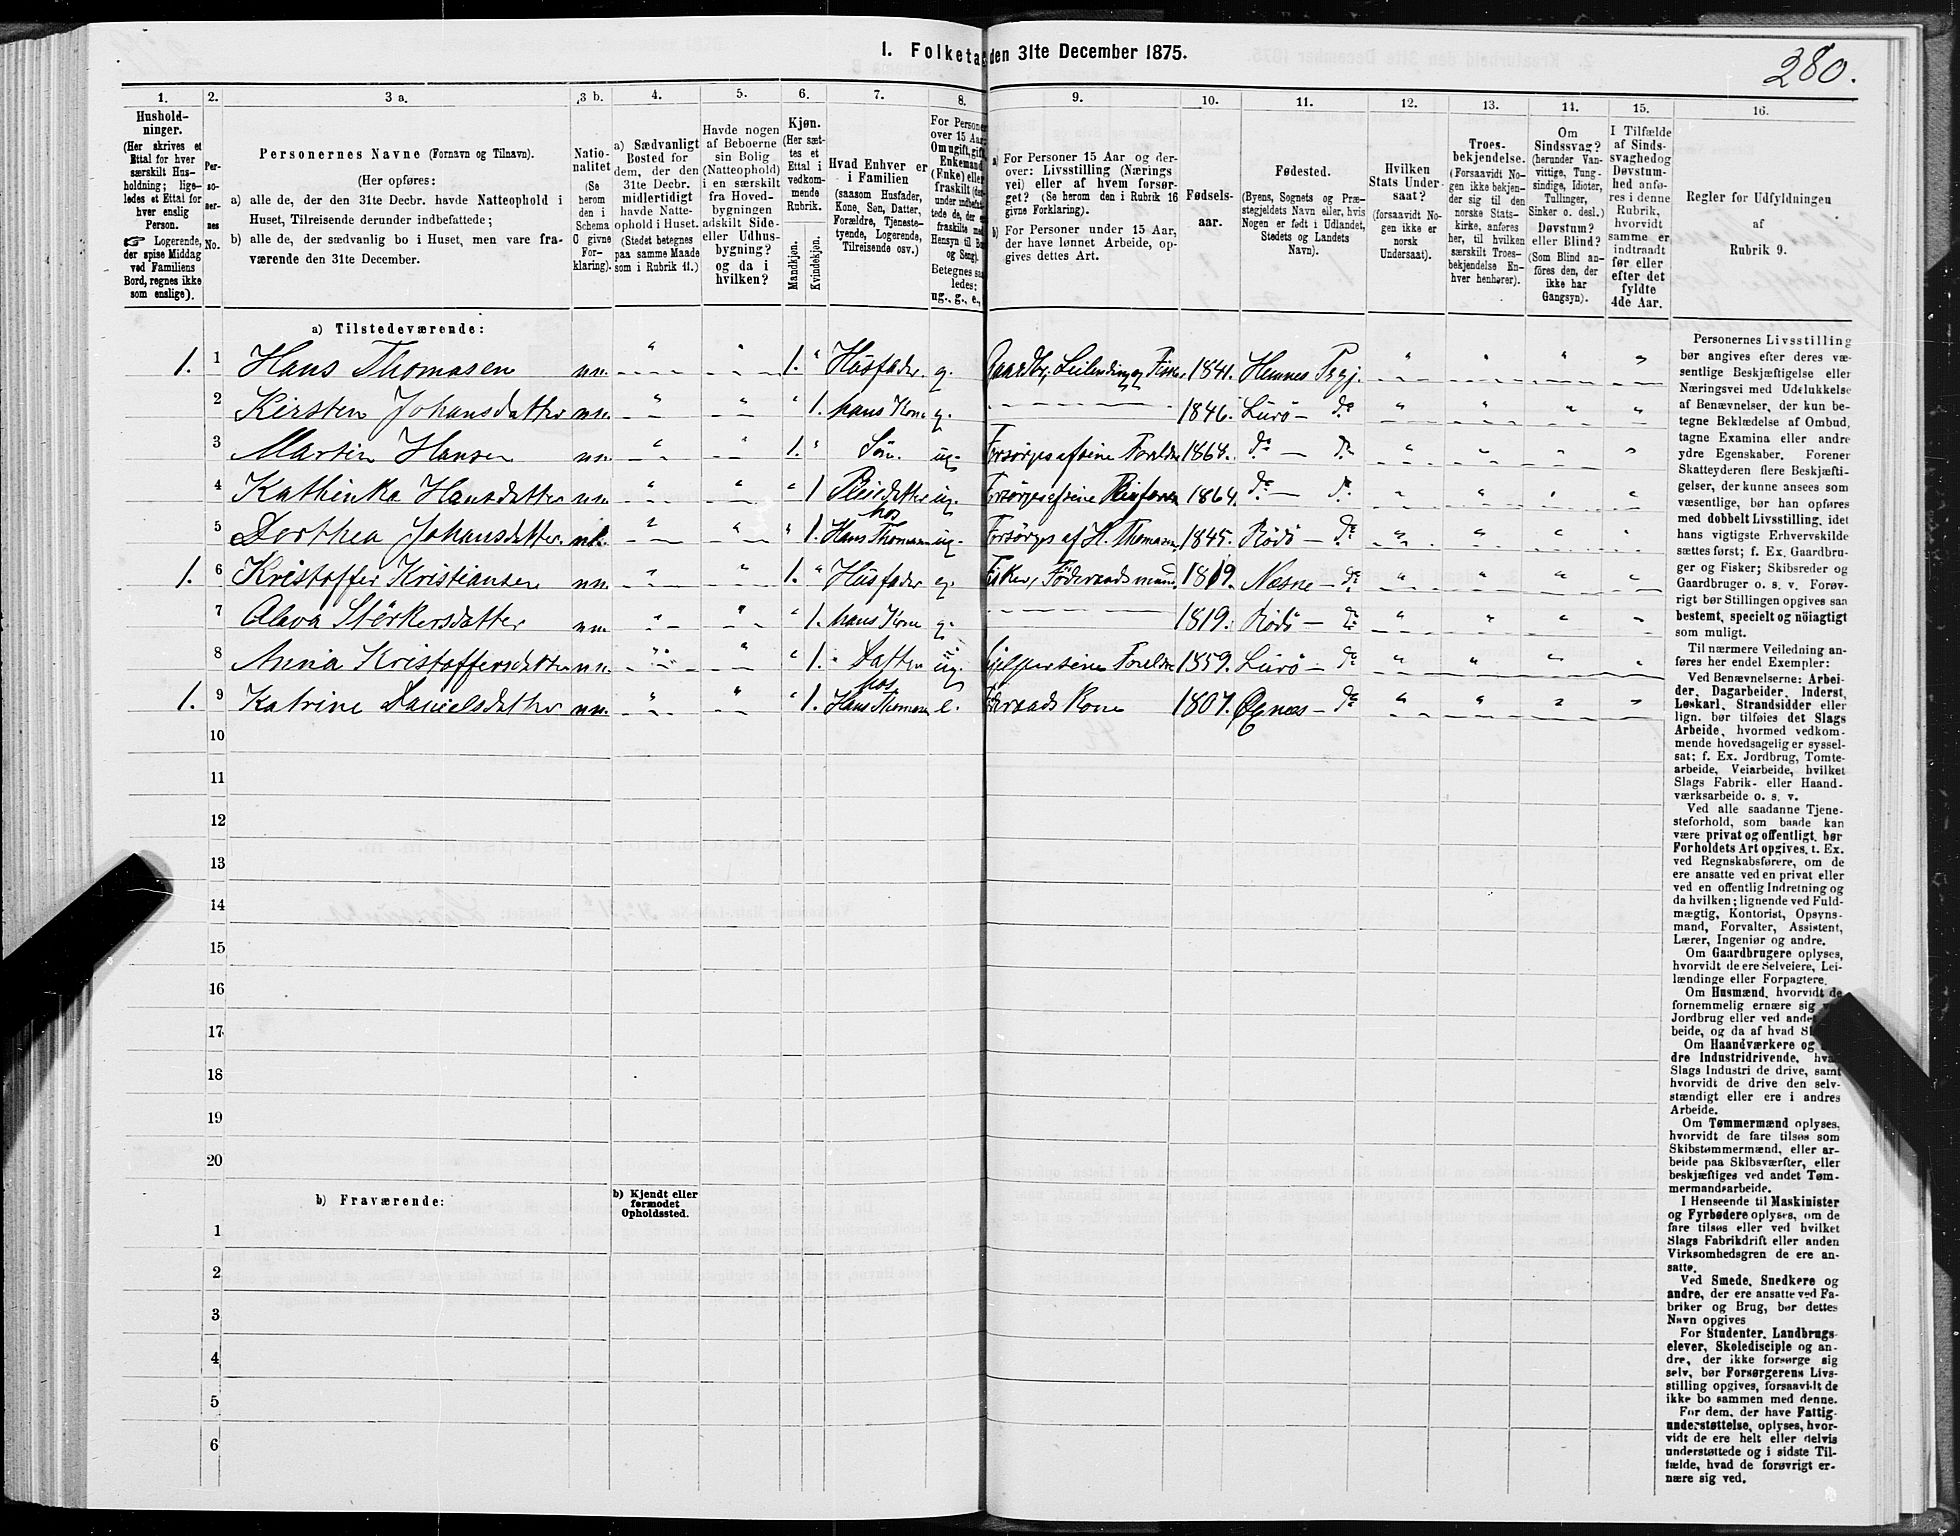 1. Folketæ den 31te December 1875.
280.
1.
2.
3 a.
3 b.
4.
5.
6.
7.
8.
9.
10.
11.
12.
13.
14.
15.
16.
Hushold-
ninger.
(Her skrives et
Ettal for hver
særskilt Hus-
holdning; lige-
ledes et Ettal for
hver enslig
Person.
☞ Logerende,
der spise Middag
ved Familiens
Bord, regnes ikke
som enslige).
Per-
so-
ner-
nes
No.
Personernes Navne (Fornavn og Tilnavn).
(Her opføres:
a) alle de, der den 31te Decbr. havde Natteophold i
Huset, Tilreisende derunder indbefattede;
b) alle de, der sædvanlig bo i Huset, men vare fra-
værende den 31te December.
Natio-
nalitet
(Se
herom
den i
Schema
O givne
For-
klaring).
a) Sædvanligt
Bosted for
dem, der den
31te Decbr.
midlertidigt
havde Natte-
ophold i Huset.
(Stedet betegnes
paa samme Maade
som i Rubrik 11.)
Havde nogen
af Beboerne
sin Bolig
(Natteophold)
i en særskilt
fra Hoved-
bygningen
adskilt Side-
eller Udhus-
bygning?
og da i
hvilken?
Kjøn.
(Her sæt-
tes et
Ettal i
vedkom-
mende
Rubrik.
Mandkjøn.
Kvindekjøn.
Hvad Enhver er
i Familien
(saasom Husfader,
Kone, Søn, Datter,
Forældre, Tjeneste-
tyende, Logerende,
Tilreisende osv.)
For Persone
over 15 Aar
Om ugift, gift,
Enkemand
(Enke) eller
fraskilt
Hensyn til Bo
og Seng).
Betegnes saa
ledes:
ug., g., e.,
a) For Personer 15 Aar og der-
over: Livsstilling (Nærings
vei) eller af hvem forsør-
get? (Se herom den i Rubrik 16
givne Forklaring).
b) For Personer under 15 Aar,
der have lønnet Arbeide, op-
gives dettes Art.
Fødsels-
aar.
Fødested.
(Byens, Sognets og Præ-
stegjeldets Navn eller, hvis
Nogen er født i Udlandet,
Stedets og Landets
Navn).
Hvilken
Stats Under-
saat?
(forsaavidt No-
gen ikke er
norsk
Undersaat).
Troes-
bekjendelse.
(Forsaavidt No-
gen ikke bekjen-
der sig til den
norske Stats-
kirke, anføres
her, til hvilken
særskilt Troes-
bekjendelse En-
hver henhører).
Om
Sindssvag?
(herunder Van-
vittige, Tung-
sindige, Idioter,
Tullinger,
Sinker o. desl.)
Døvstum?
eller Blind?
(Som Blind an-
føres den, der
ikke har
Gangsyn).
I Tilfælde
af Sinds-
svaghed og
Døvstum-
hed anfø-
res i denne
Rubrik,
hvorvidt
samme er
indtraadt
før eller
efter det
fyldte
4de Aar.
Regler for Udfyldningen
af
Rubrik 9.
a) Tilstedeværende:
1. 1 Hans Thomasen nn. " " 1. " Husfader g. Gaardbr, Leilending og Fisker 1841. Hemnes Prgj. " " " "
2 Kirsten Johansdatter nn. " " " 1. hans Kone g. 1846. Lurö – do " " " "
3 Martin Hansen nn. " " 1. " Søn. ug. Forsørges af sine Foreldre 1864. do – do " " " "
4 Kathinka Hansdatter nn. " " " 1 Pleiedatter ug. Forsørges af sine 1864. do – do " " " "
5 Dorthea Johansdatter. " " " 1. hos Hans Thomasen ug. Forsørges af H. Thomasen, 1845. Rödö – do " " " "
1. 6 Kristoffer Kristiansen nn. " " 1. " Husfader g. Fisker, Föderaadsmand, 1819. Næsne – do " " " "
7 Størkersdatter nn. " " " 1. hans Kone g. 1819. Rödö – do " " " "
8 Anna Kristoffersdatter nn. " " " 1. Datter ug. Hjelper sine Foreldre 1859. Lurö – do " " " "
1. 9 Katrine Danielsdatter nn. " " " 1. hos Hans Thomasen e. Föderaads Kone 1807. Øxnæs – do " " " "
10
11
12
13
14
15
16
17
18
19
20
b) Fraværende:
b) Kjendt eller
formodet
Opholdssted.
1
2
3
4
5
6
Personernes Livsstilling
bør angives efter deres væ-
sentlige Beskjæftigelse eller
Næringsvei med Udelukkelse
af Benævnelser, der kun be-
tegne Beklædelse af Ombud,
tagne Examina eller andre
ydre Egenskaber. Forener
Skatteyderen flere Beskjæfti-
gelser, der kunne ansees som
væsentlige, bør han opføres
med dobbelt Livsstilling, idet
hans vigtigste Erhvervskilde
sættes først; f. Ex. Gaardbru-
ger og Fisker; Skibsreder og
Gaardbruger o. s. v. Forøv-
rigt bør Stillingen opgives saa
bestemt, specielt og nöiagtigt
som muligt.
Til nærmere Veiledning an-
føres her endel Exempler:
Ved Benævnelserne: Arbei-
der, Dagarbeider, Inderst,
Løskarl, Strandsidder eller
lign. bør tilføies det Slags
Arbeide, hvormed vedkom-
mende hovedsagelig er syssel-
sat; f. Ex. Jordbrug, Tomte-
arbeide, Veiarbeide, hvilket
Slags Fabrik- eller Haand-
værksarbeide o. s. v.
Ved alle saadanne Tjene-
steforhold, som baade kan
være privat og offentligt, bør
Forholdets Art opgives, t. Ex.
ved Regnskabsførere, om de
ere ansatte ved en privat eller
ved en offentlig Indretning og
da hvilken; lignende ved Fuld-
mægtig, Kontorist, Opsyns-
mand, Forvalter, Assistent,
Lærer, Ingeniør og andre.
Om Gaardbrugere oplyses,
hvorvidt de ere Selveiere, Lei-
lændinge eller Forpagtere.
Om Husmænd, hvorvidt de
fornemmelig ernære sig
Jordbrug eller ved andet
beide, og da af hvad
Om Haandværkere og
dre Industridrivende,
Slags Industri de drive, samt
hvorvidt de drive den selv-
stændigt eller ere i andres
Arbeide.
Om Tømmermænd oplyses,
hvorvidt de fare tilsøs som
Skibstømmermænd, eller ar-
beide paa Skibsværfter, eller
beskjæftiges ved andet Tøm-
mermandsarbeide.
I Henseende til Maskinister
og Fyrbødere oplyses, om de
fare tilsøs eller ved hvilket
Slags Fabrikdrift eller anden
Virksomhedsgren de ere an-
satte.
Ved Smede, Snedkere og
andre, der ere ansatte ved Fa-
briker og Brug, bør dettes
Navn opgives
For Studenter, Landbrugs-
elever, Skoledisciple og an-
dre, der ikke forsørge sig
selv, bør Forsørgerens Livs-
stilling opgives, forsaavidt de
ikke bo sammen med denne.
For dem, der have Fattig-
understøttelse, oplyses, hvor-
vidt de ere helt eller delvis
understøttede og i sidste Til-
fælde, hvad de forøvrigt er-
nære sig ved.